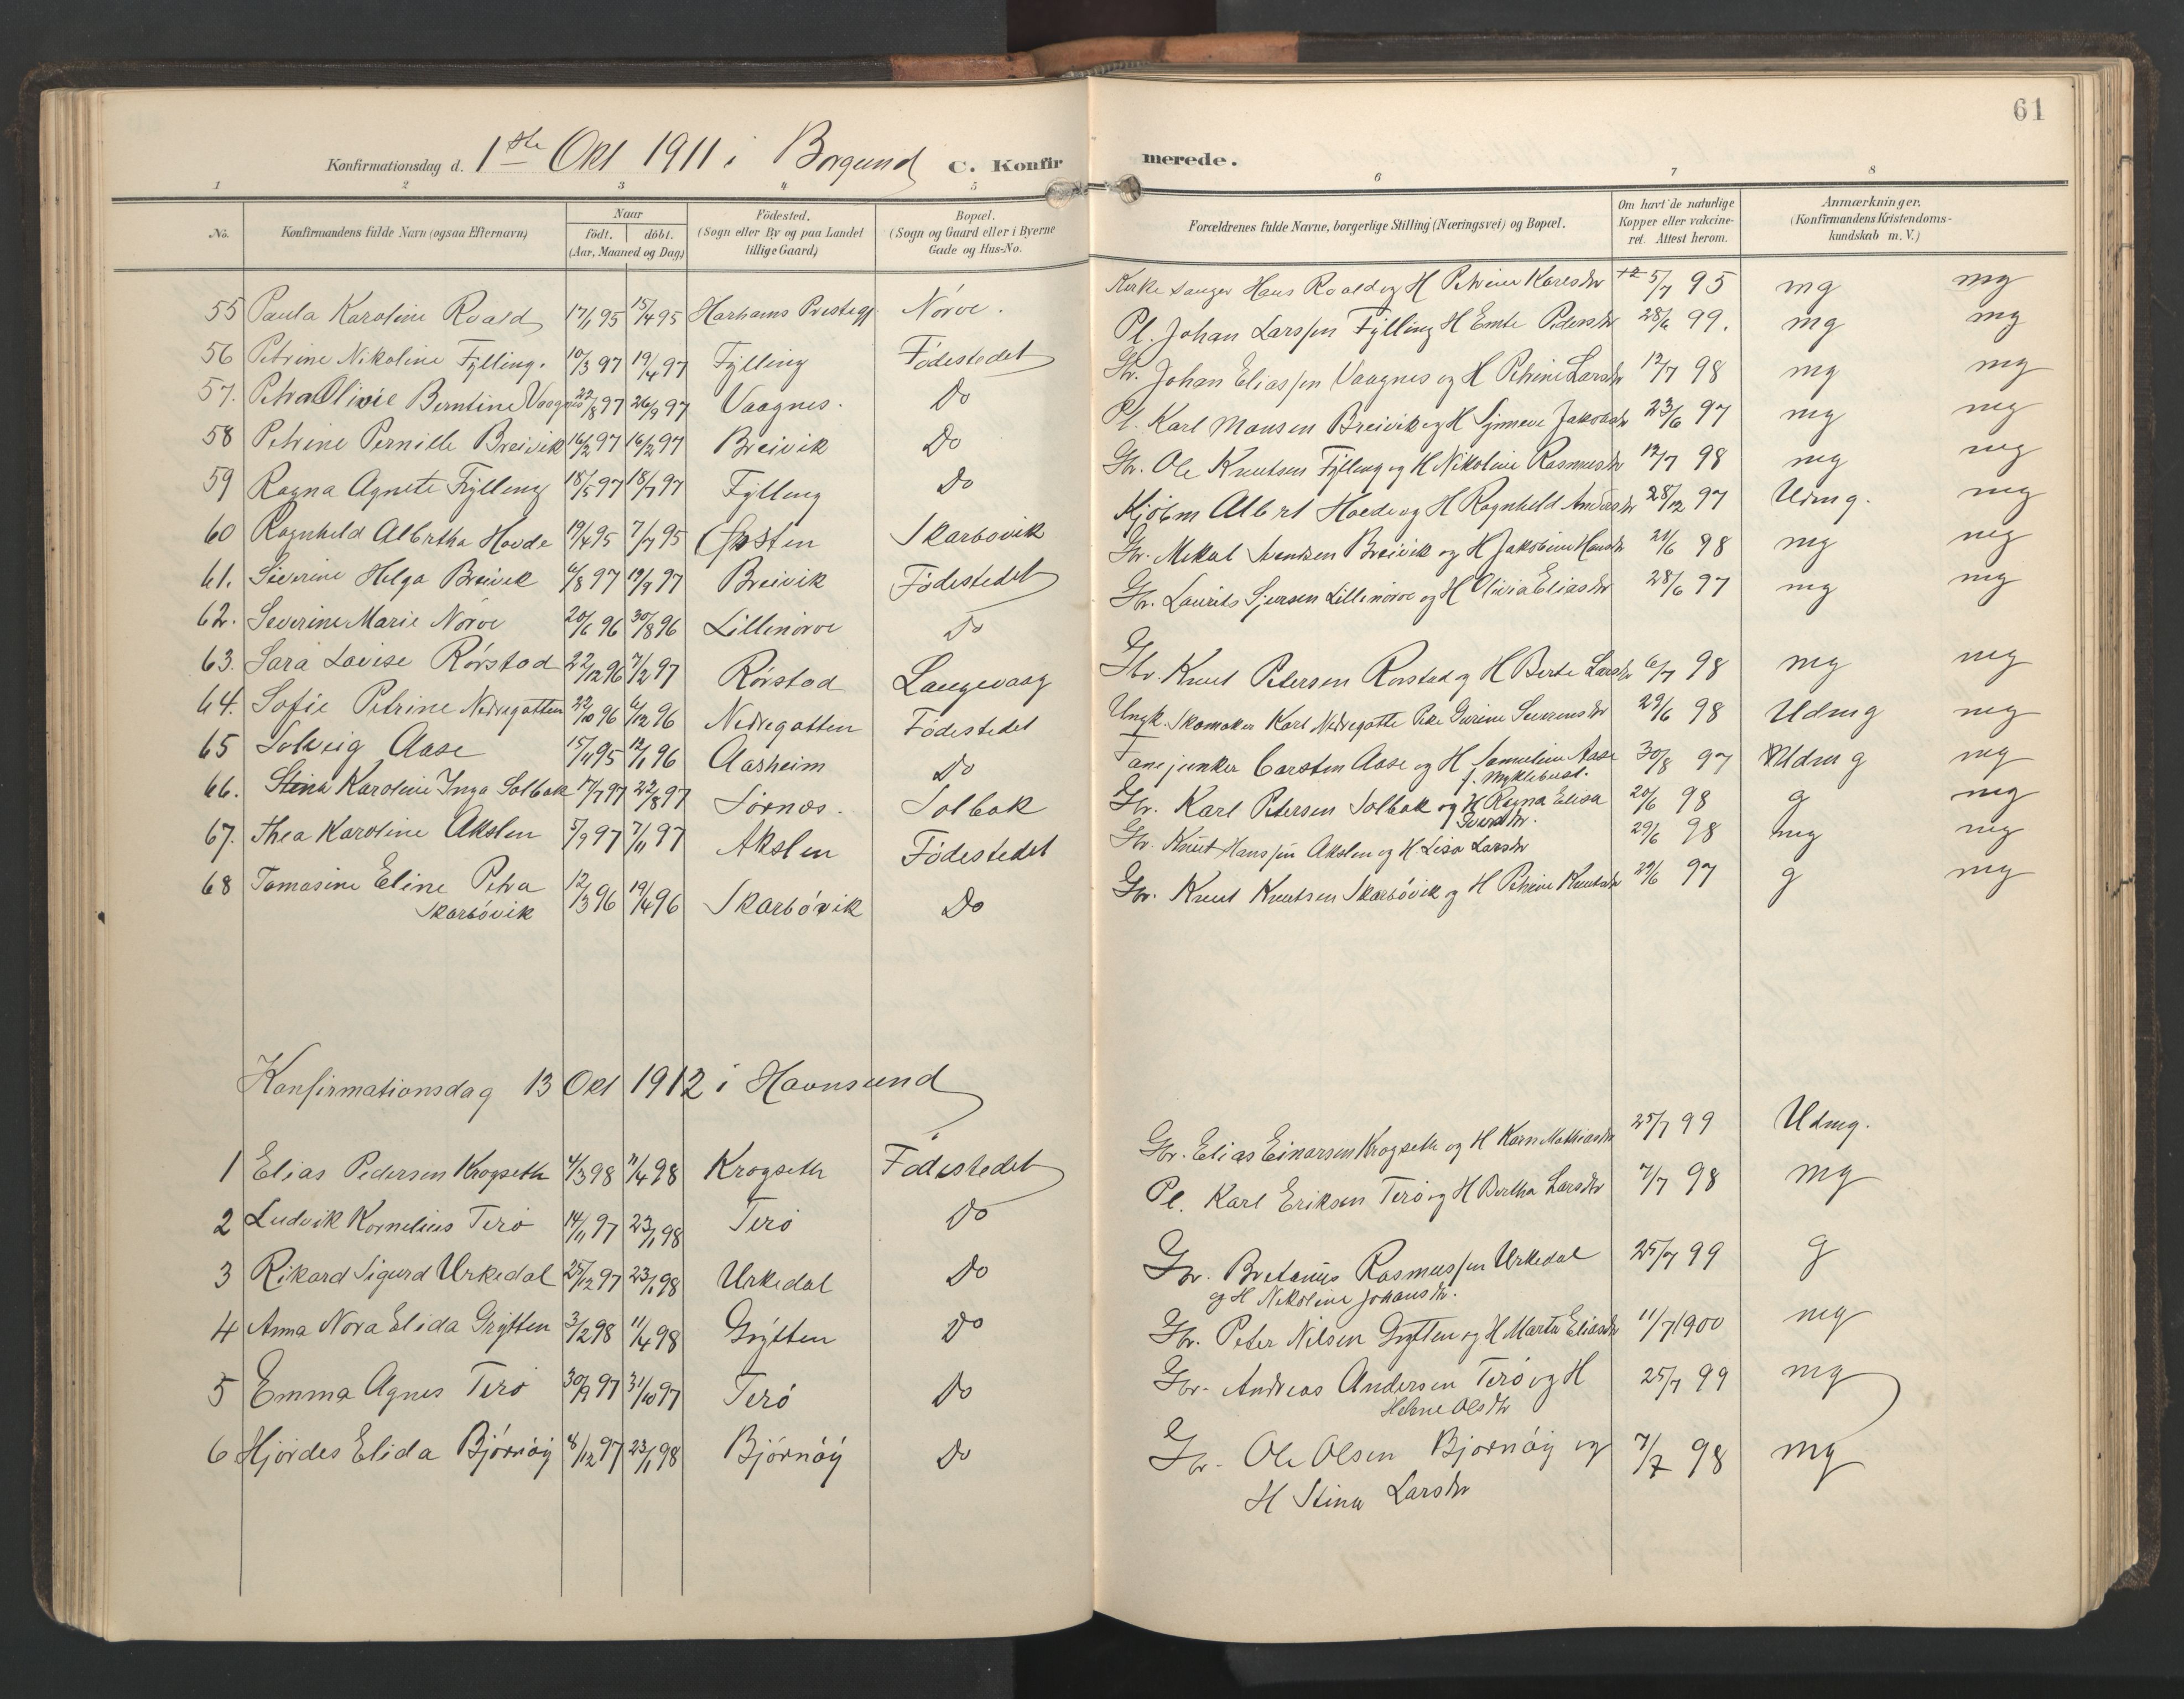 61
Konfirmationsdag d. 1ste Okt 1911 i Borgund C. Konfirmerede.
1 2 3 4 5 6 7 8
No. Konfirmandens fulde Navn (ogsaa Efternavn) Naar födt. döbt. (Aar, Maaned og Dag) Födested. (Sogn eller By og paa Landet tillige Gaard) Bopæl. (Sogn og Gaard eller i Byerne Gade og Hus-No. Forældrenes fulde Navne, borgerlige Stilling (Næringsvei) og Bopæl. Om havt de naturlige Kopper eller vakcineret. Attest herom. Anmærkninger. (Konfirmandens Kristendomskundskab m. V.)
55 Paula Karoline Roald 17/1 95 15/4 95 Harhams Prestegj Nörve. Kirkesanger Hans Roald og H Petrine Karlsdtr 5/7 95 mg mg
56 Petrine Nikoline Fylling. 10/3 97 19/4 97 Fylling Födestedet Pl. Johan Larssen Fylling H Emte Pedersdtr 28/6 99. mg mg
57. Petra Olivie Berntine Vaagnes 22/8 97 26/9 97 Vaagnes. Do Gbr. Johan Eliassen Vaagnes og H Petrine Larsdtr 12/7 98 mg mg
58 Petrine Pernille Breivik 16/2 97 16/2 97 Breivik Do Pl. Karl Monsen Breivik og H Synneve Jakobsdtr 23/6 97 mg mg
59 Ragna Agnete Fylling 18/5 97 18/7 97 Fylling Do Gbr. Ole Knutsen Fylling og H Nikoline Rasmusdtr 12/7 98 mg mg
60 Ragnhild Albrtha Hovde 19/4 95 7/7 95 Skarbövik Kjöbm Albrt Hovde og H Ragnhild Andersdtr 28/12 97 Udmg. mg
61. Siverine Helga Breivik 6/8 97 19/9 97 Breivik Födestedet Gbr. Mikal Svendsen Breivik og H Jakobine Hansdtr 21/6 98 mg mg
62. Severine Marie Nörve 20/6 96 30/8 96 Lillenörve Do Gbr. Laurits Sjursen Lillenörve og H Olivia Eliasdtr 28/6 97 mg mg
63. Sara Lovise Rörstad 22/12 96 7/2 97 Rörstad Langevaag Gbr. Knut Petersen Rörstad og H Berte Larsdtr 6/7 98 mg mg
64. Sofie Petrine Nedregotten 22/10 96 6/12 96 Nedregotten Födestedet Ungk. Skomaker Karl Nedregotte Pike Gurine Severinsdtr 29/6 98 Udmg mg
65 Solveig Aase 15/11 95 12/1 96 Aasheim Do Fanejunker Carsten Aase og H Samueline Aase f. Myklebust. 30/8 97 Udmg mg
66. Stina Karoline Inga Solbak 17/7 97 22/8 97 Sörnes. Solbak Gbr. Karl Petersen Solbak og H Ragna Elisa Iversdtr. 20/6 98 g mg
67. Thea Karoline Akslen 5/9 97 7/11 97 Akslen Födestedet Gbr. Knut Hanssen Akslen og H. Lisa Larsdtr 29/6 98 mg mg
68 Tomasine Eline Petra Skarbövik 12/3 96 19/4 96 Skarbövik Do Gbr. Knut Knutsen Skarbövik og H Petrine Knutsdtr 29/6 97 g mg
Konfirmationsdag 13 Okt 1912 i Havnsund
1 Elias Pedersen Krogseth 4/3 98 11/4 98 Krogseth Födestedet Gbr. Elias Einarsen Krogseth og H Karn Mathiasdtr 25/7 99 Udmg.
2 Ludvik Kornelius Terö 14/11 97 23/1 98 Terö Do Pl. Karl Eriksen Terö og H Bertha Larsdtr 7/7 98 mg
3 Rikard Sigurd Urkedal 25/12 97 23/1 98 Urkedal Do Gbr. Bretanus Rasmussen Urkedal og H Nikoline Johansdtr. 25/7 99 g
4 Anna Nora Elida Grytten 3/2 98 11/4 98 Grytten Do Gbr. Peter Nilsen Grytten og H Marta Eliasdtr 11/7 1900 mg
5 Emma Agnes Terö 30/9 97 31/10 97 Terö Do Gbr. Andreas Andersen Terö og H Helene Olsdtr 25/7 99 mg
6 Hjördes Elida Björnöy 8/12 97 23/1 98 Björnöy Do Gbr. Ole Olsen Björnöy og H Stina Larsdtr 7/7 98 mg